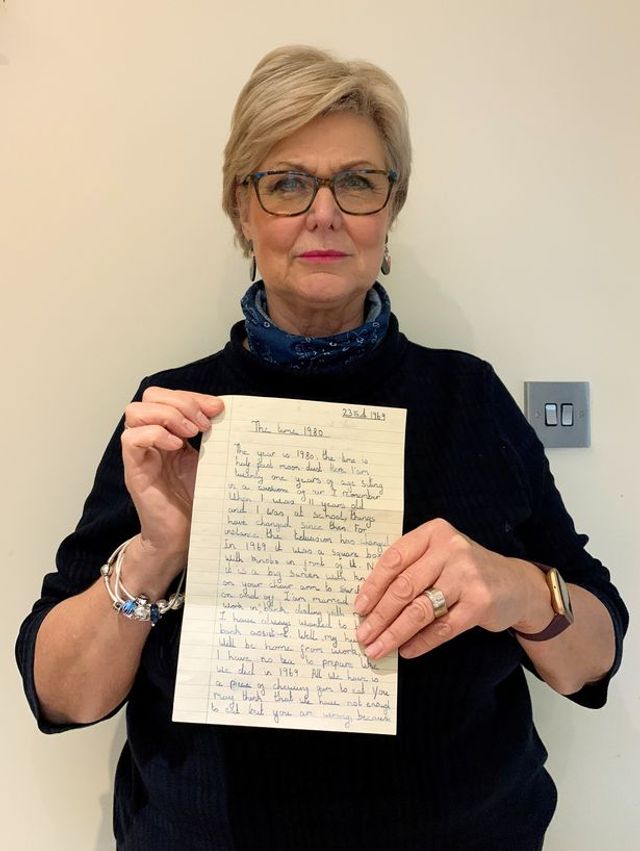 23rd 1969
The time 1980
The year is 1980, the time is
half past moon-dust. Here I am
twenty one years of age siting
in a cushione of air. I remember
When I was 11 years old
and I was at school, things
have changed since then. For
instance, the television has changed
In 1969 it was a square box
with knobs in front of it. N
it is a big screen with kno
on your chair arm to
on and off. I am married
work in
I have always wanted to
Well, my hus
Will be home from work,
I have no tea to prepare like
We did in 1969. All we have is
a piece of chewing gum to eat. You
may think that we have not enough
to eat but you are wrong, because